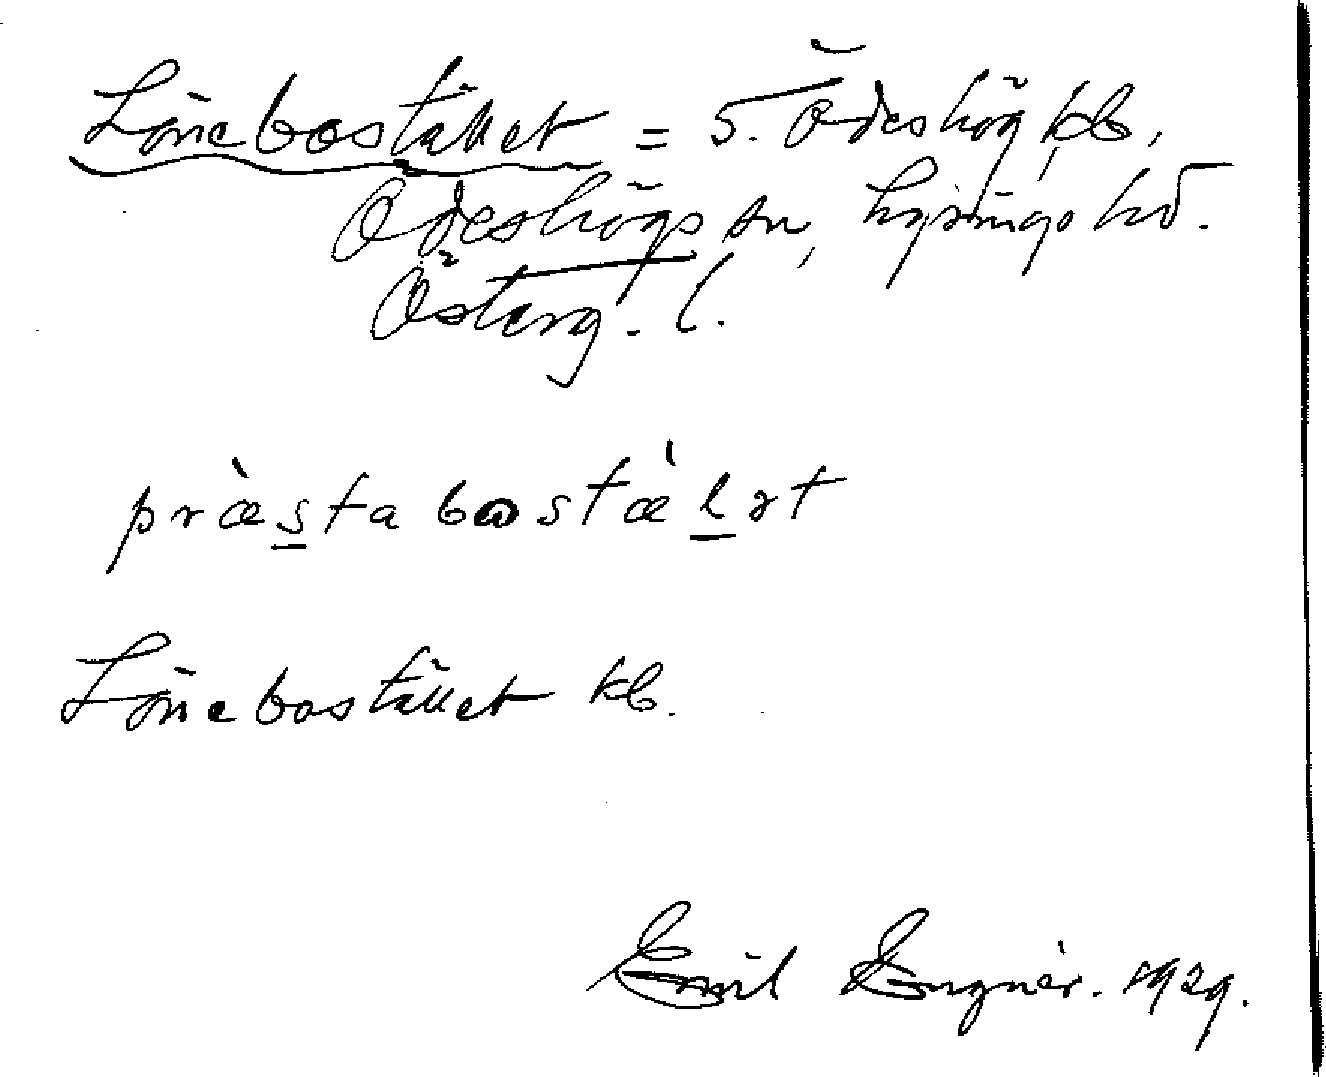 Lönebostället = S. Ödeshög kb,
Ödeshögs sn, Lysings hd.
Österg. l.
præ̀sta bωstæ̀lət
Lönebostället kb.
Emil Engnér. 1929.